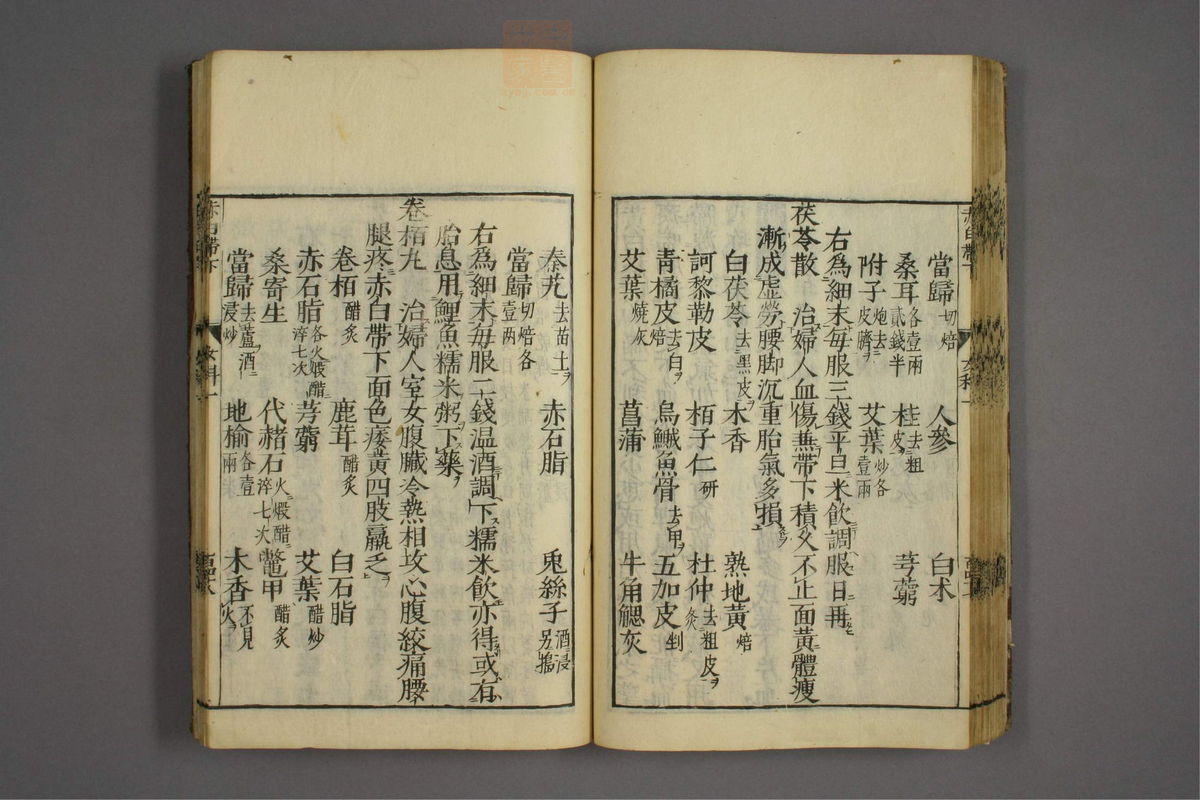 當歸切焙 人參 白朮
桑耳各壹兩貳錢半 桂去粗皮 芎藭
附子炮去皮臍 艾葉炒各壹兩
右爲細末每服三錢平旦米飲調服日再
茯苓散 治婦人血傷蕪帶下積久不止面黃體瘦
漸成虛勞腰脚沉重胎氣多損
白茯苓去黑皮 木香 熟地黃焙
訶黎勒皮 栢子仁研 杜仲去粗皮灸
青橘皮去白焙 烏鰂魚骨去甲 五加皮剉
艾葉燒灰 菖蒲 牛角䚡灰
秦艽去苗土 赤石脂 兎絲子酒浸另搗
當歸切焙各壹两
右爲細末每服二錢温酒調下糯米飲亦得或有
胎息用鯉魚糯米粥下藥
卷栢丸 治婦人室女腹臟冷熱相攻心腹絞痛腰
腿疼赤白帶下面色痿黃四肢羸乏
卷栢醋炙 鹿茸醋炙 白石脂
赤石脂各火煅醋淬七次 芎藭 艾葉醋炒
桑寄生 代赭石火煅醋淬七次 鼈甲醋炙
當歸去蘆酒浸炒 地榆各壹兩 木香不見火